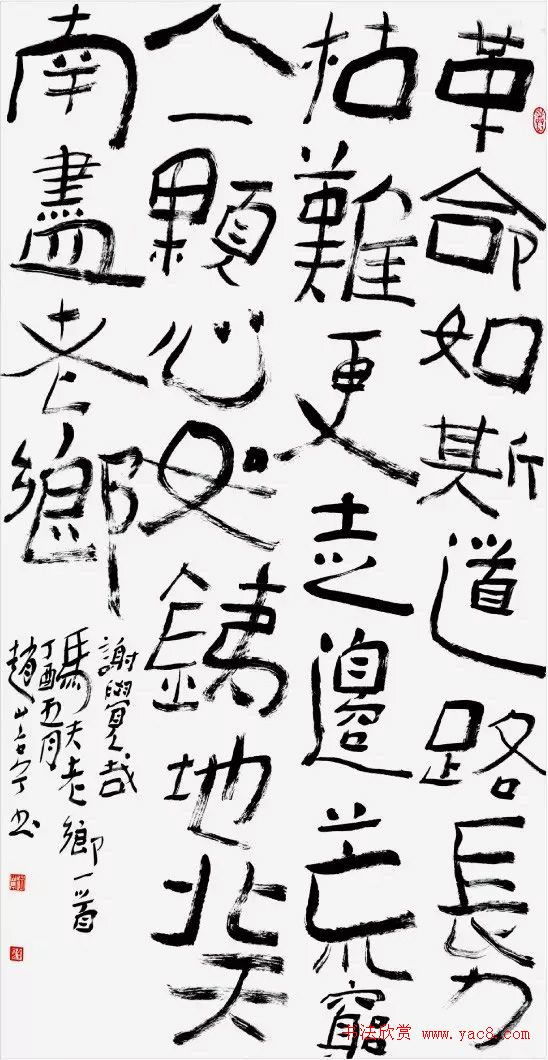 革命如斯道路長力
枯難更走邊荒窮
人一顆心如銕地北天
南盡老鄉
謝覺哉
馬夫老鄉一首
丁酉五月
趙书
书法欣赏 www.yac8.com